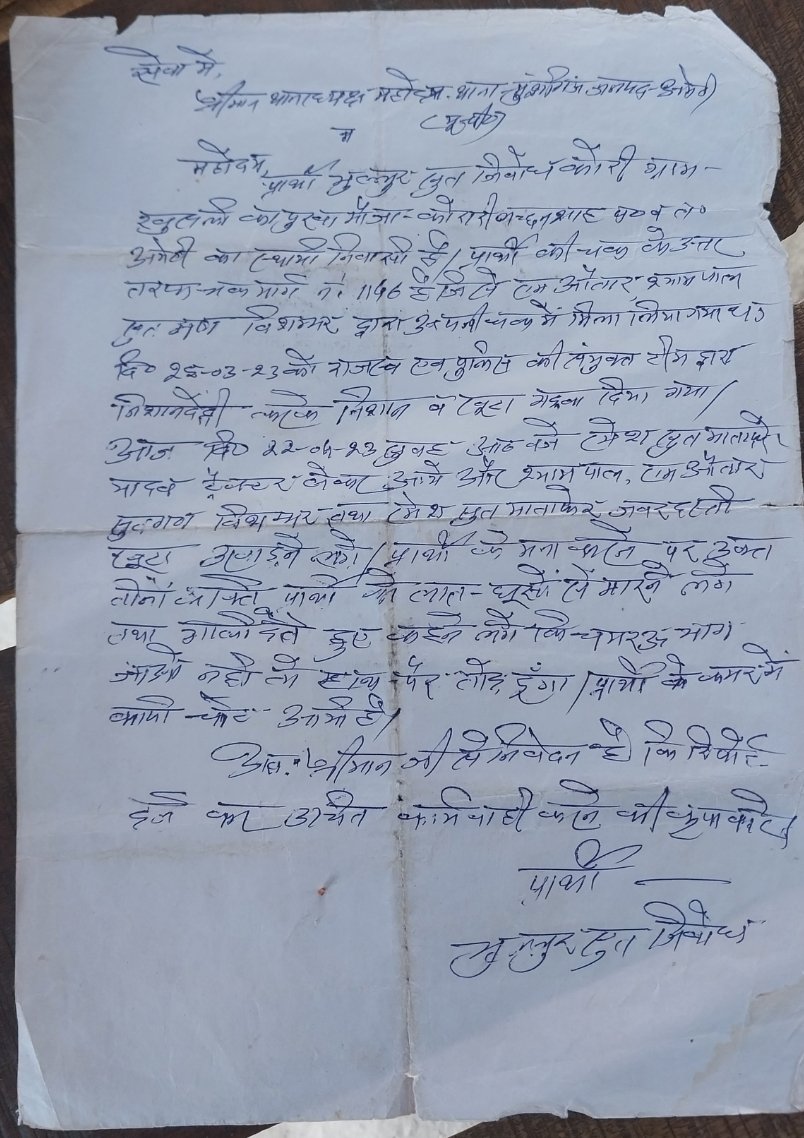 सेवा में,
श्रीमान थानाध्यक्ष महोदय थाना मुंशीगंज जनपद-अमेठी
(यू०पी०)
महोदय,
प्रार्थी सुत निर्बोध कोरी ग्राम-
का पुरवा मौजा- व त०
अमेठी का स्थायी निवासी है। प्रार्थी की चक के उत्तर
तरफ चकमार्ग नं. 1146 है जिसे राम औतार, श्यामपाल
सुत गण विशम्भर द्वारा अपनी चक में मिला लिया गया था
दि० -03-23 को राजस्व एवं पुलिस की संयुक्त टीम द्वारा
निशानदेही करके निशान व खूटा गड़वा दिया गया।
आज दि० 22-04-23 सुबह आठ बजे रमेश सुत माताफेर
यादव ट्रैक्टर लेकर आये और श्यामपाल, राम औतार
सुतगण विशम्भर तथा रमेश सुत माताफेर जबरदस्ती
खूटा उखाड़ने लगे। प्रार्थी के मना करने पर उक्त
तीनों व्यक्ति प्रार्थी को लात-घूसों से मारने लगे
तथा गाली देते हुए कहने लगे कि चमरऊ भाग
जाओ नही तो हाथ-पैर तोड़ दूँगा। प्रार्थी के कमर में
काफी चोट आयी है।
अतः श्रीमान जी से निवेदन है कि रिपोर्ट
दर्ज कर उचित कार्यवाही करने की कृपा करें।
प्रार्थी
सुत निर्बोध